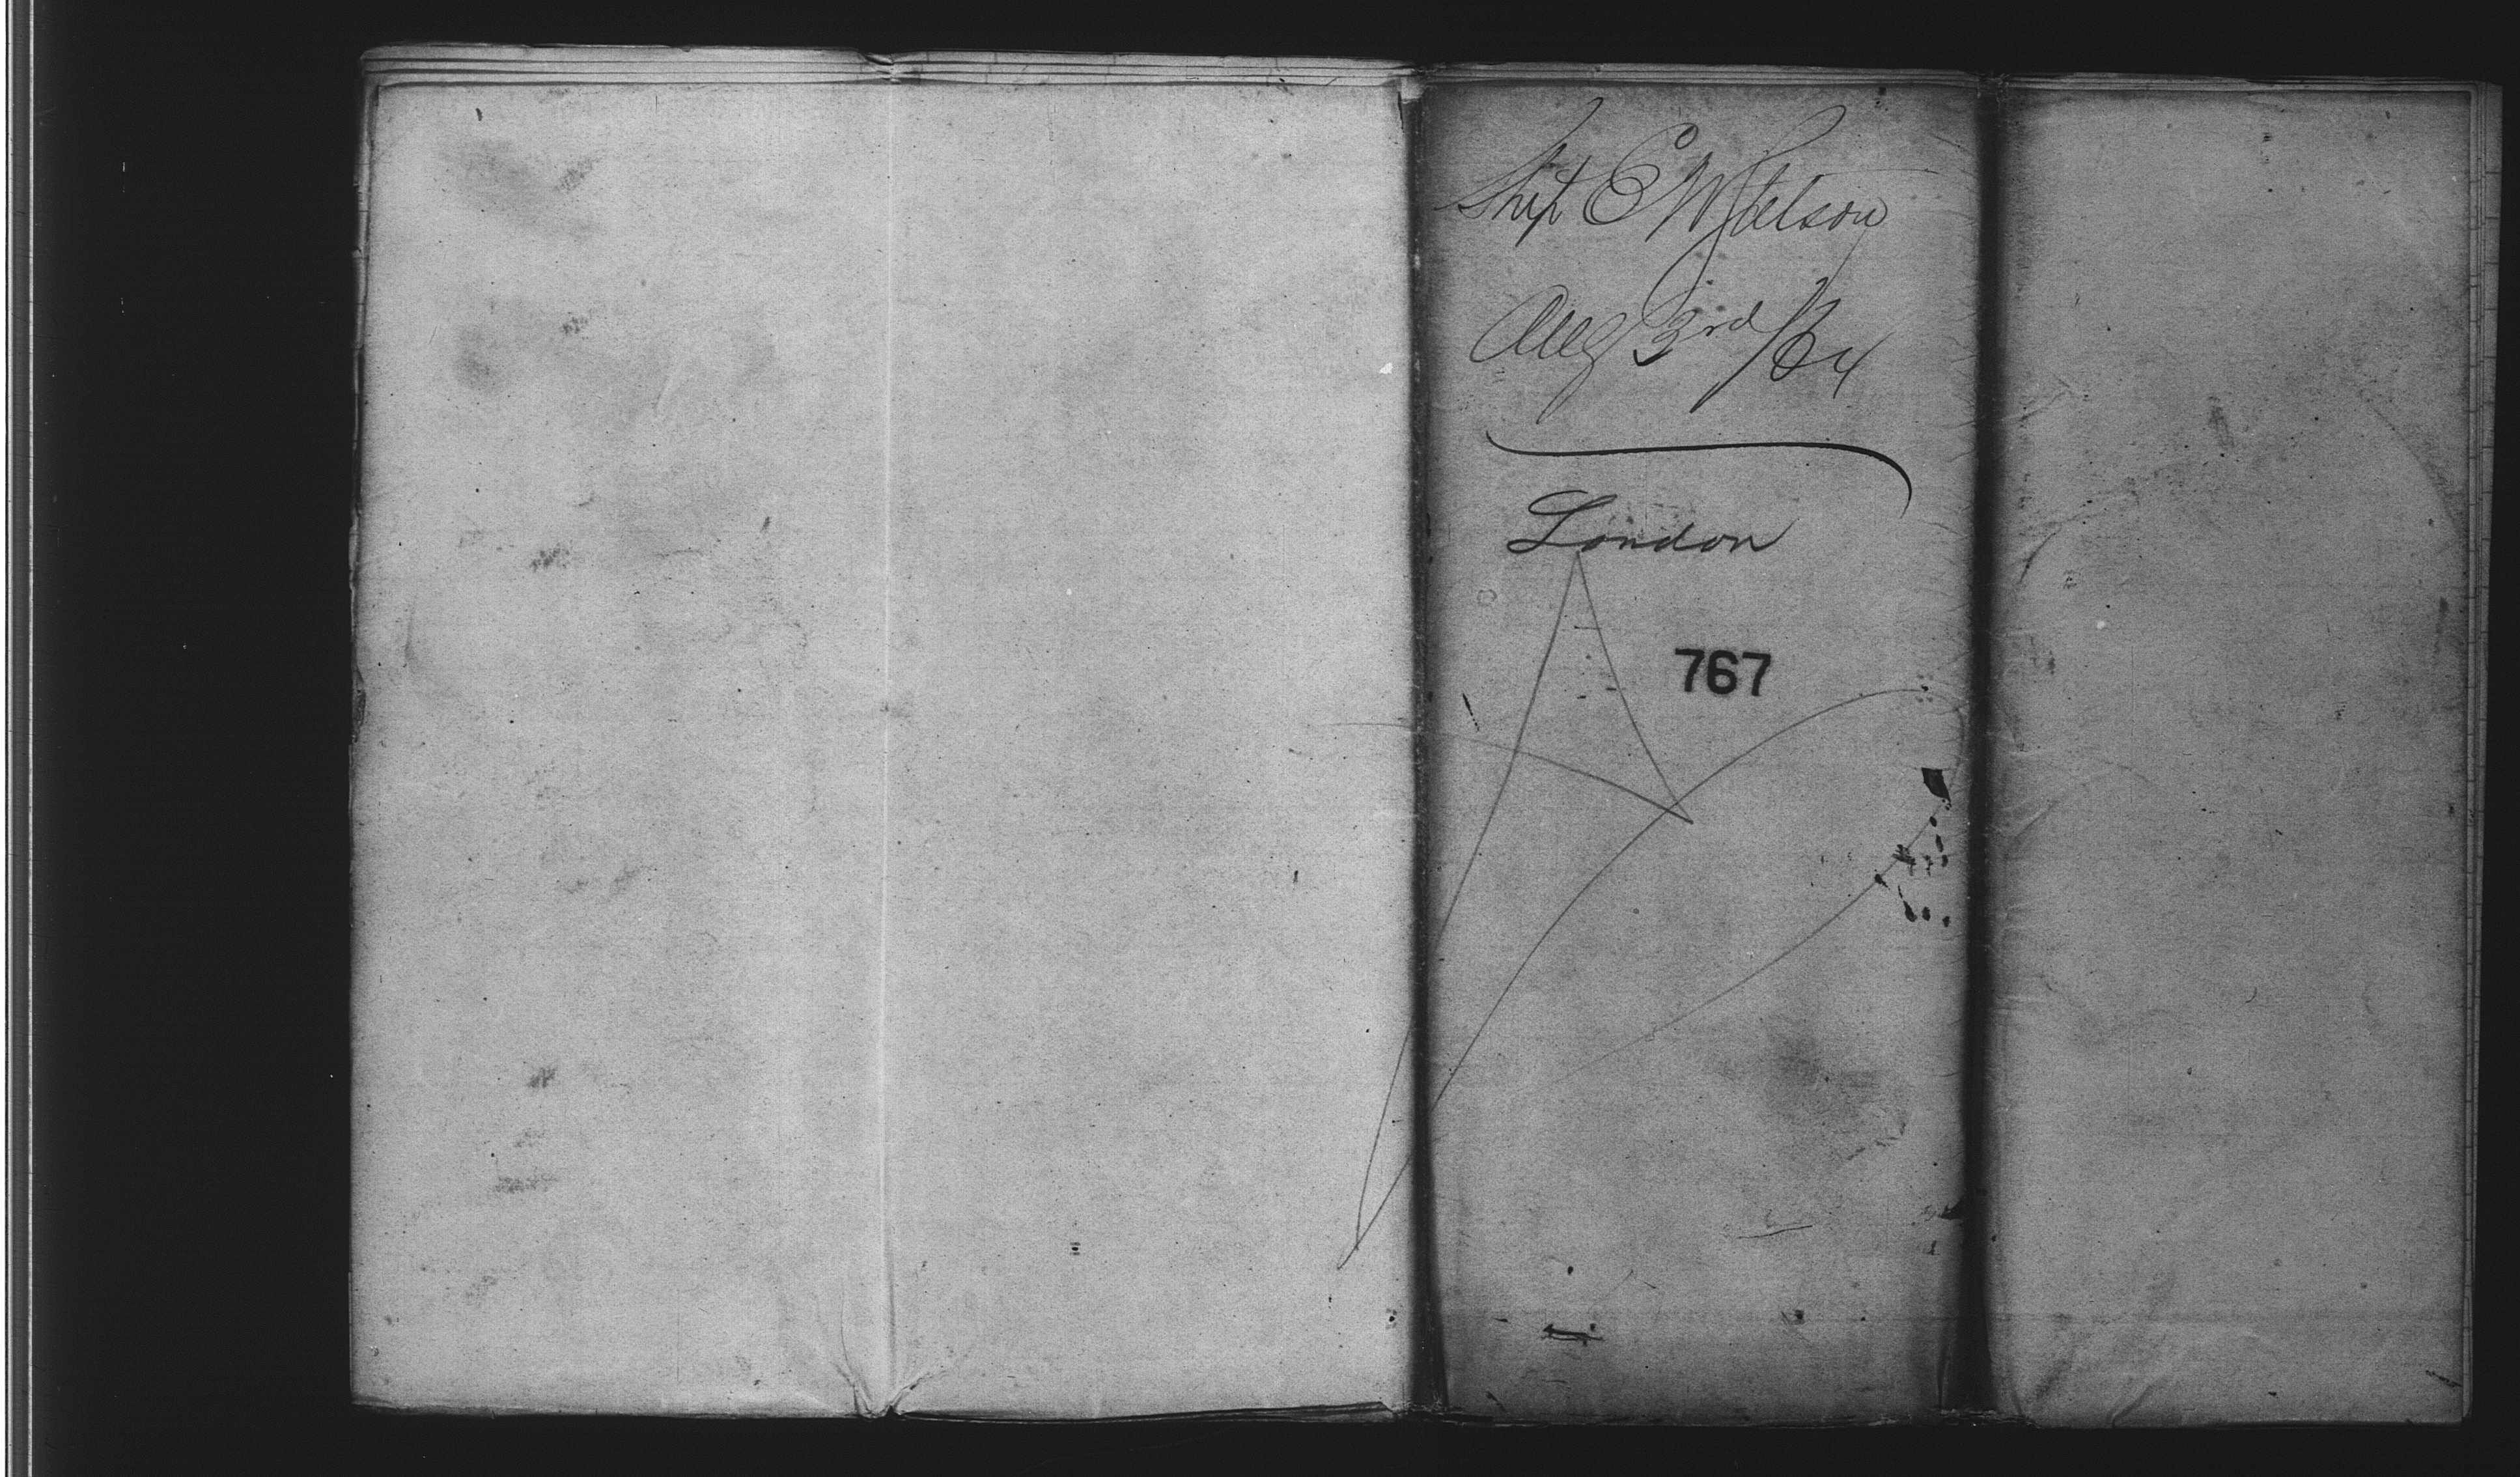 Ship E W Stetson
Aug 3rd/64
London
767